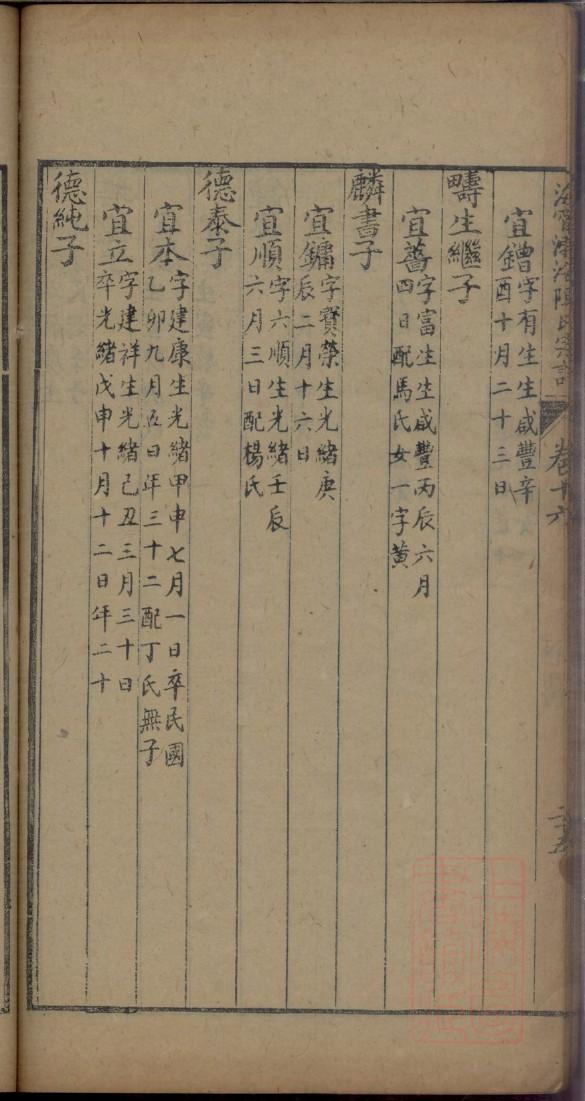 海寧渤海陳氏宗譜 卷十六
宜鏳字有生生咸豐辛
酉十月二十三日
疇生繼子
宜薔字富生生咸豐丙辰六月
四日配馬氏女一字黃
麟書子
宜鏽字寶榮生光緒庚
辰二月十六日
宜順字六順生光緒壬辰
六月三日配楊氏
德泰子
宜本字建康生光緒甲申七月一日卒民國
乙卯九月五日年三十二配丁氏無子
宜立字建祥生光緒己丑三月三十日
卒光緒戊申十月十二日年二十
德純子